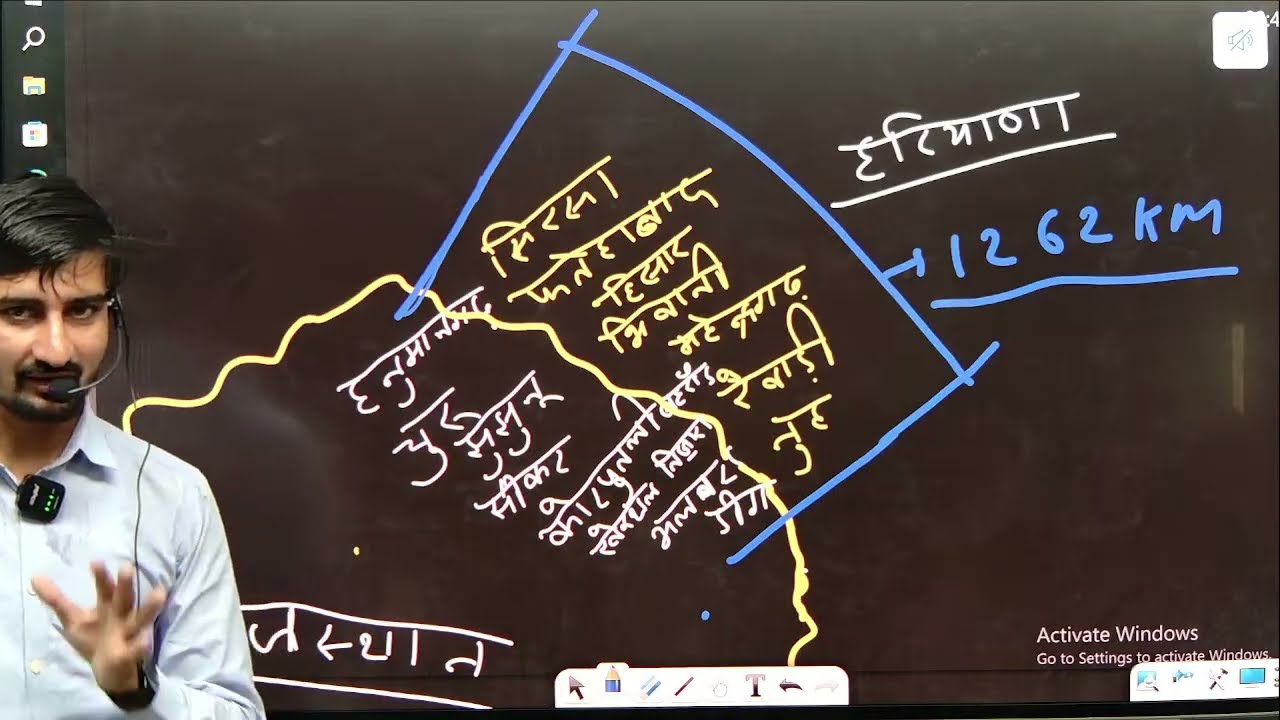 हरियाणा
1262 KM
सिरसा
फतेहाबाद
हिसार
भिवानी
महेन्द्रगढ़
रेवाड़ी
नुह
हनुमानगढ़
चुरू
झुंझुनू
सीकर
कोटपुतली बहरोड़
खैरथल तिजारा
अलवर
डीग
जस्थान
Activate Windows
Go to Settings to activate Windows.